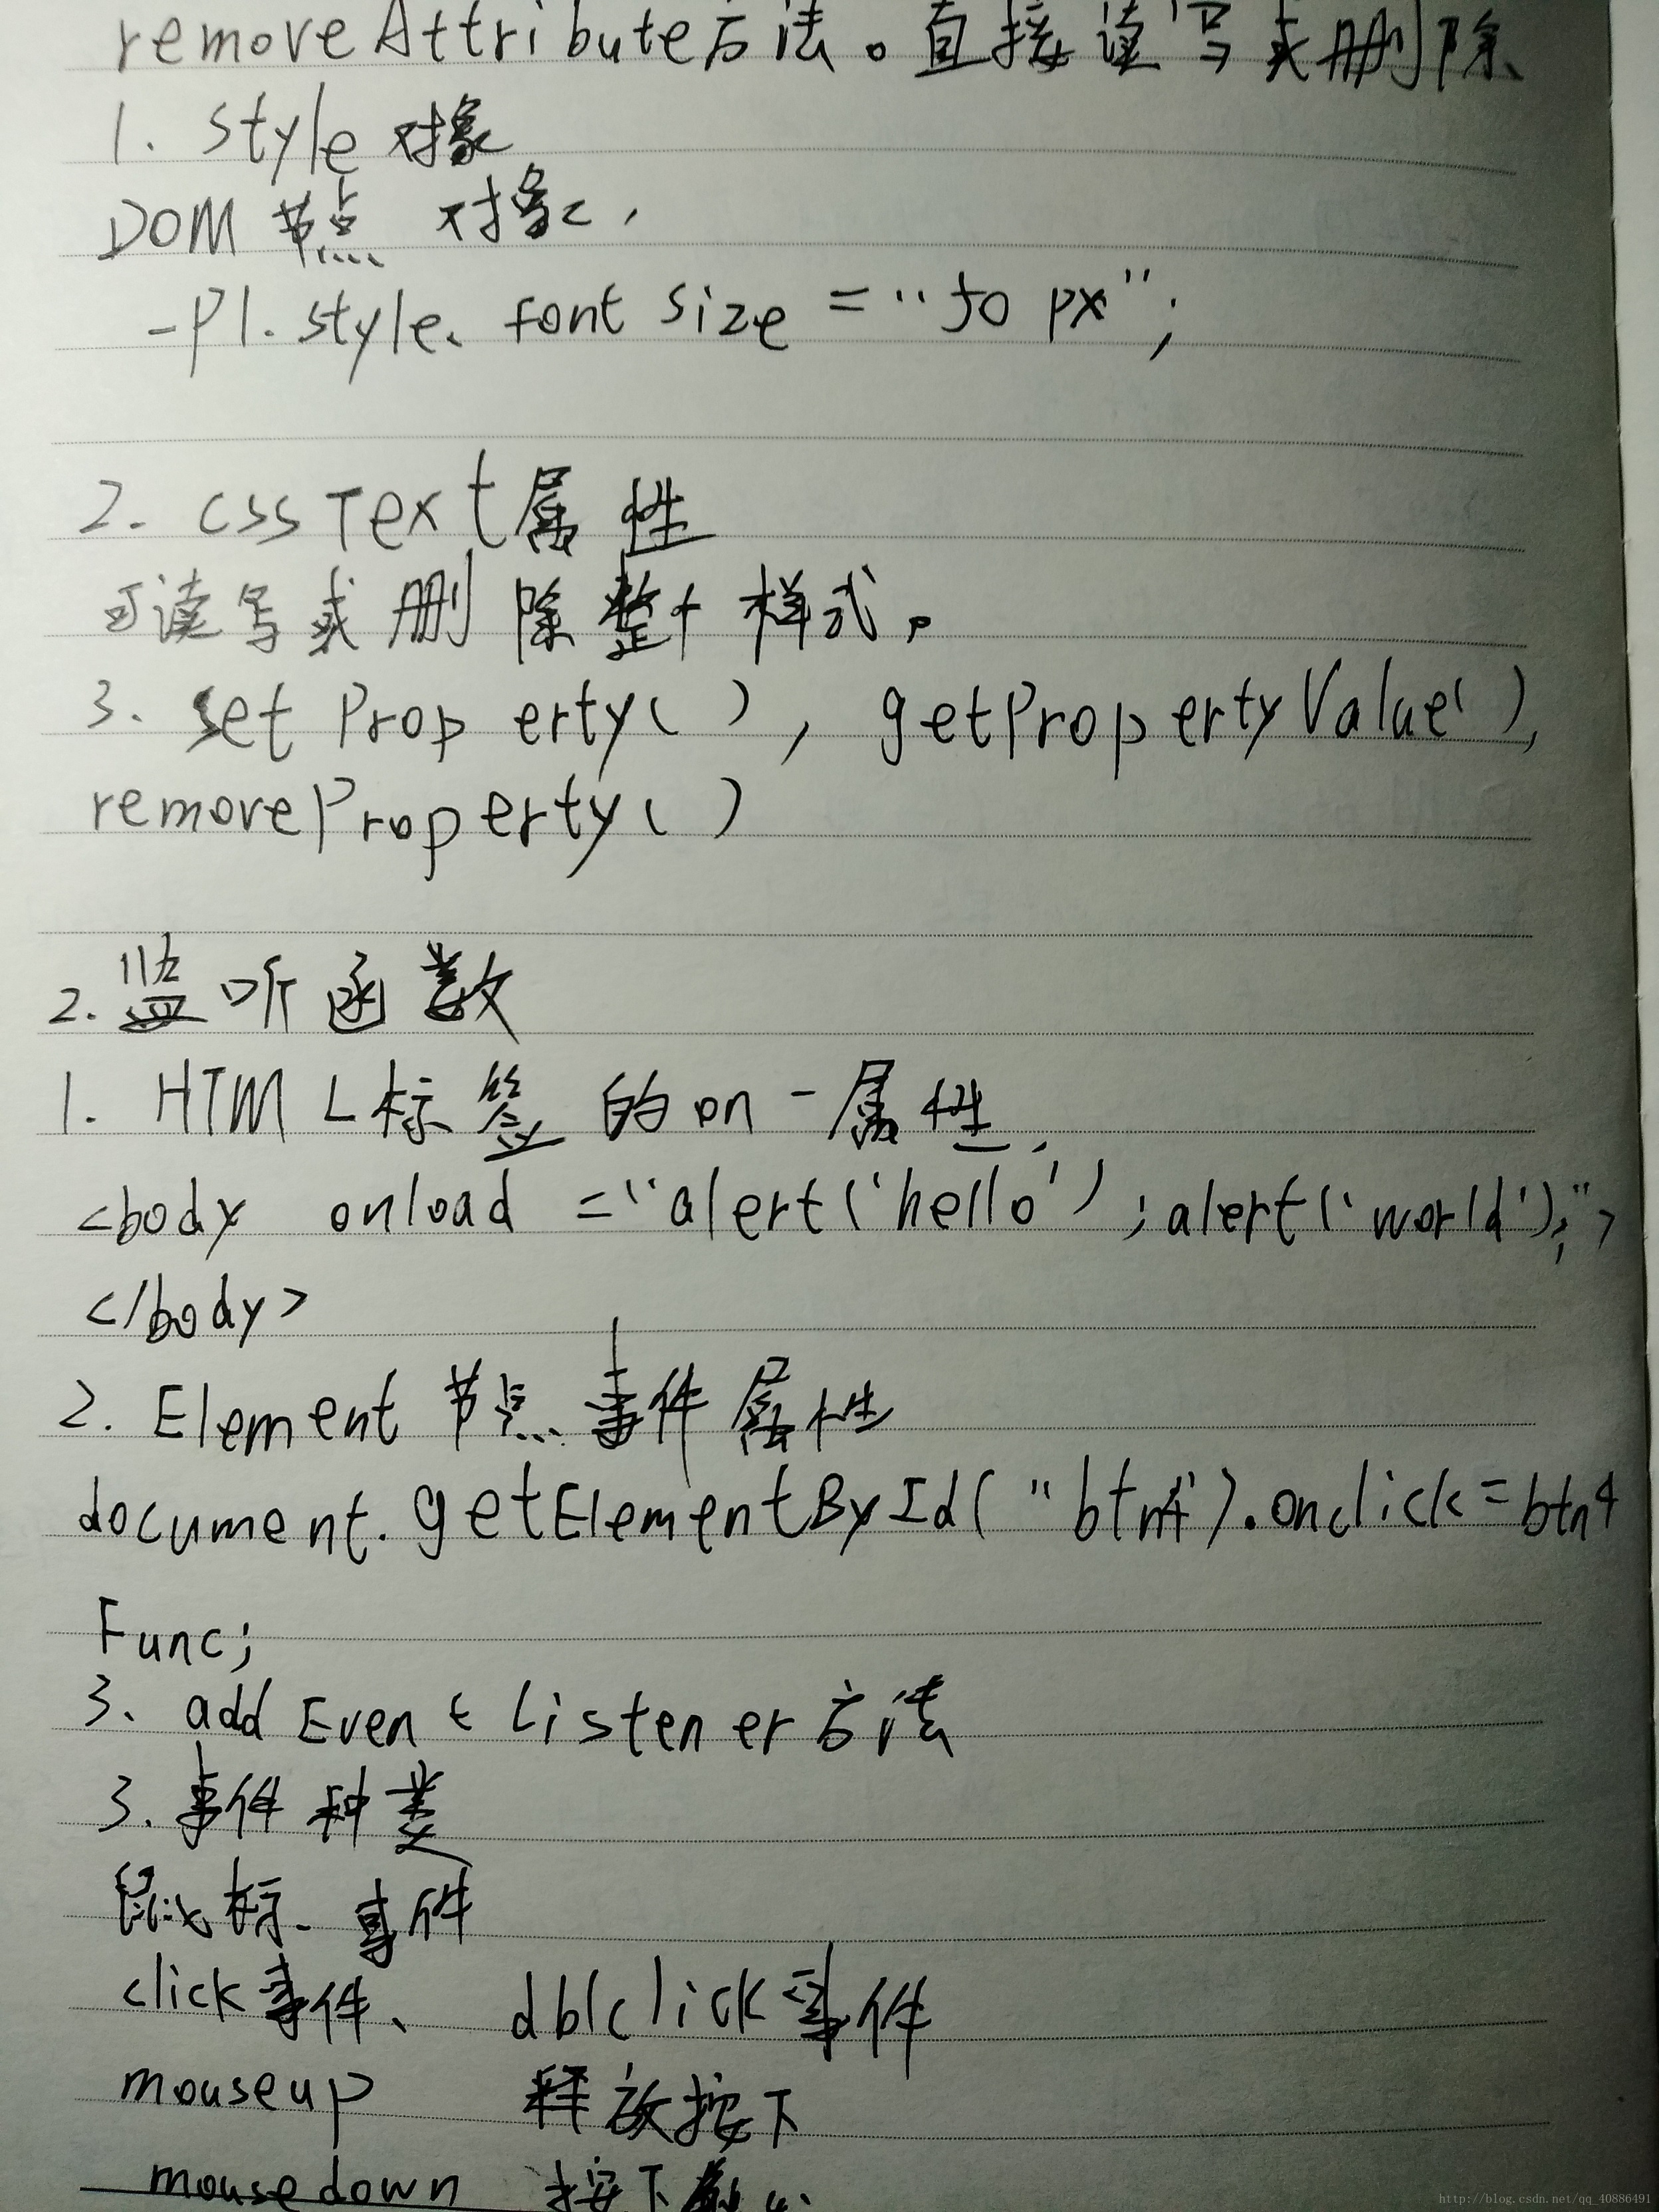 removeAttribute方法。直接读写或删除
1. style 对象
DOM 节点 对象,
-p1.style. font size = "50 px";
2. cssText属性
可读写或删除整个样式。
3. set Property( ), getPropertyValue( ),
removeProperty( )
2.监听函数
1. HTML标签的on-属性,
<body onload ="alert('hello');alert('world');">
</body>
2. Element 节点事件属性
document.getElementById("btn4").onclick=btn4
Func;
3. addEventListener方法
3.事件种类
鼠标事件
click事件、 dblclick事件
mouseup 释放按下
mousedown 按下
http://blog.csdn.net/qq_40886491